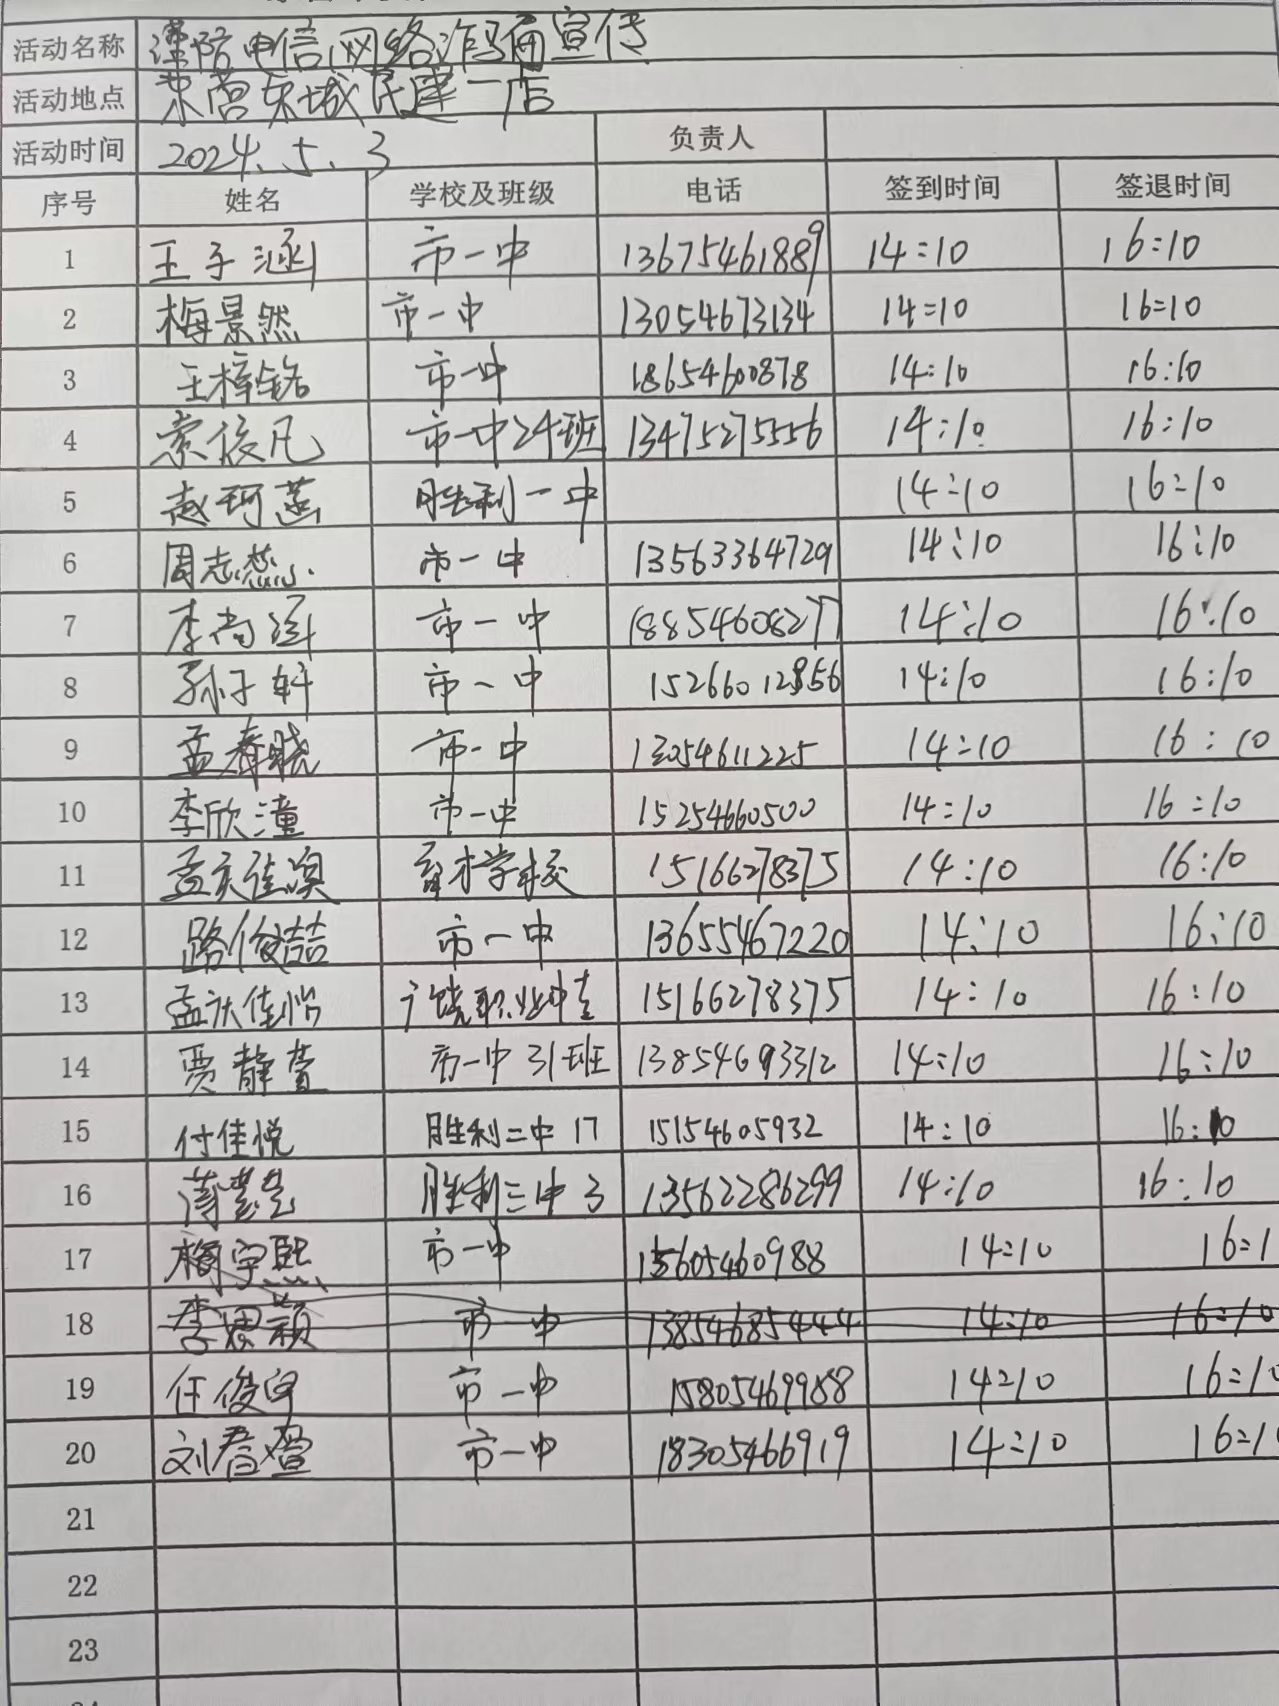 活动名称 谨防电信网络诈骗宣传
活动地点 东营东城民建一店
活动时间 2024.5.3 负责人
序号 姓名 学校及班级 电话 签到时间 签退时间
1 王子涵 市一中 13675461889 14:10 16:10
2 梅景然 市一中 13054673134 14:10 16:10
3 王梓铭 市一中 18654600878 14:10 16:10
4 索俊凡 市一中24班 13475275556 14:10 16:10
5 赵珂菡 胜利一中 14:10 16:10
6 周志蕊 市一中 13563364729 14:10 16:10
7 李尚涵 市一中 18854608277 14:10 16:10
8 孙子轩 市一中 15266012856 14:10 16:10
9 孟春晓 市一中 13054611225 14:10 16:10
10 李欣潼 市一中 15254660500 14:10 16:10
11 孟庆佳 育才学校 15166278375 14:10 16:10
12 路俊喆 市一中 13655467220 14:10 16:10
13 孟庆佳怡 广饶职业中专 15166278375 14:10 16:10
14 贾静萱 市一中 31班 13854693312 14:10 16:10
15 付佳悦 胜利二中 17 15154605932 14:10 16:10
16 胜利三中 3 13562286299 14:10 16:10
17 梅宇熙 市一中 13605460988 14:10 16:1
18 李思颖 市一中 13854685444 14:10 16:10
19 任俊宇 市一中 15805469988 14:10 16:10
20 刘春萱 市一中 18305466919 14:10 16:1
21
22
23